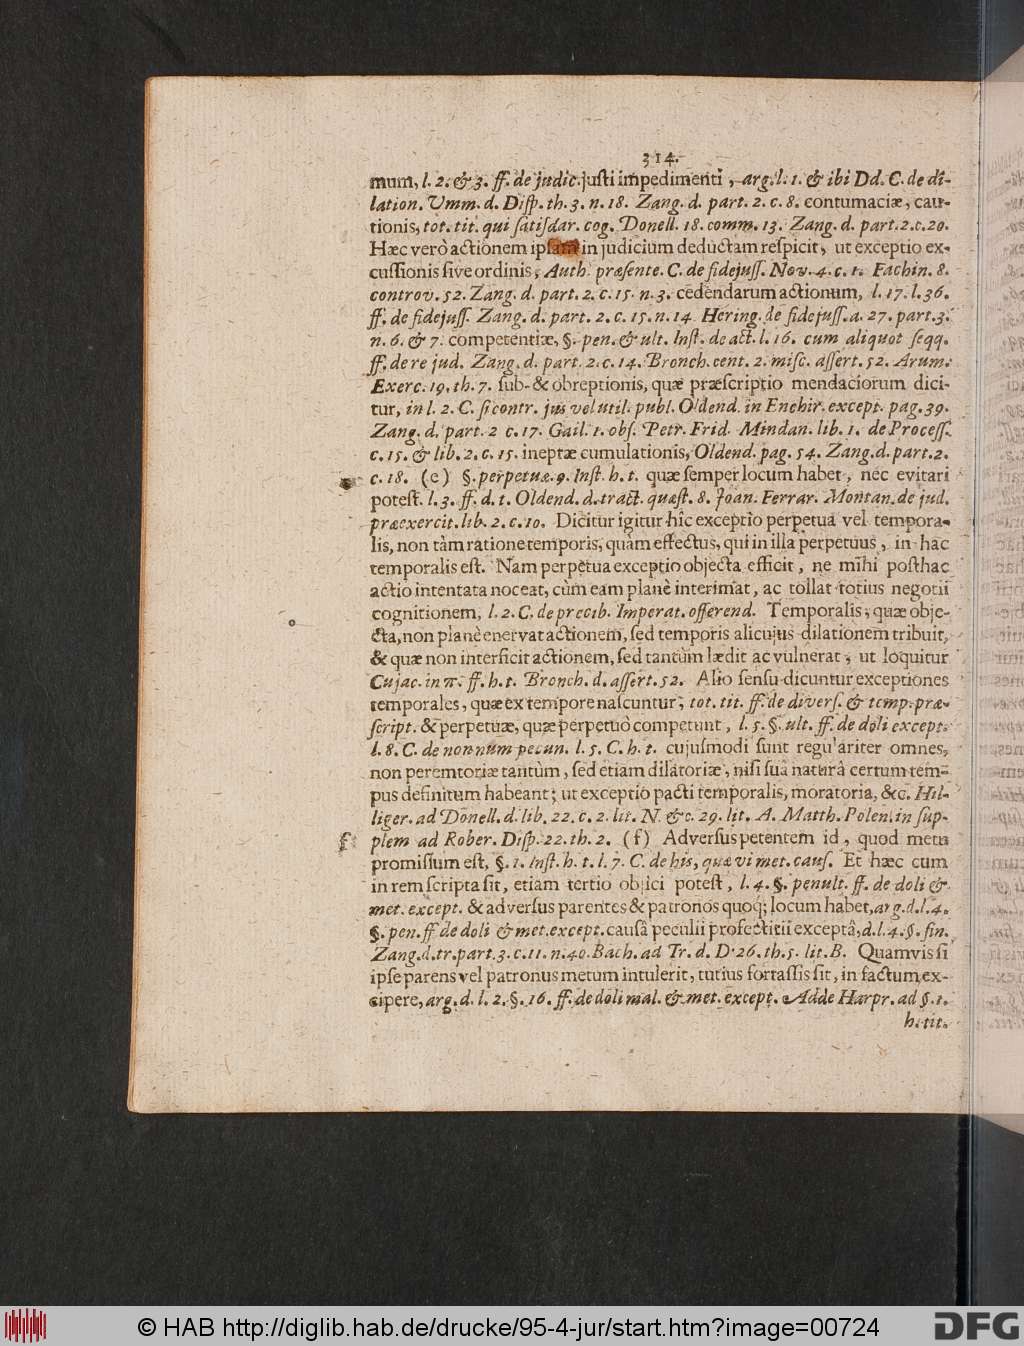 314.
mum, l. 2. & 3. ff. de judic. justi impedimenti, arg. l. 1. & ibi Dd. C. de di-
lation. Umm. d. Disp. th. 3. n. 18. Zang. d. part. 2. c. 8. contumaciæ, cau-
tionis, tot. tit. qui satisdar. cog. Donell. 18. comm. 13. Zang. d. part. 2. c. 20.
Hæc verò actionem ipsam in judicium deductam respicit, ut exceptio ex-
cussionis sive ordinis, Auth. præsente. C. de fidejuss. Nov. 4. c. 1. Fachin. 8.
controv. 52. Zang. d. part. 2. c. 15. n. 3. cedendarum actionum, l. 17. l. 36.
ff. de fidejuss. Zang. d. part. 2. c. 15. n. 14 Hering. de fidejuss. a. 27. part. 3.
n. 6. & 7. competentiæ, §. pen. & ult. Inst. de act. l. 16. cum aliquot seqq.
ff. de re jud. Zang. d. part. 2. c. 14. Bronch. cent. 2. misc. assert. 52. Arum.
Exerc. 19. th. 7. sub- & obreptionis, quæ præscriptio mendaciorum dici-
tur, in l. 2. C. si contr. jus vel util. publ. Oldend. in Enchir. except. pag. 39.
Zang. d. part. 2 c. 17. Gail. 1. obs. Petr. Frid. Mindan. lib. 1. de Process.
c. 15. & lib. 2. c. 15. ineptæ cumulationis, Oldend. pag. 54. Zang. d. part. 2.
c. 18. (e) §. perpetuæ. 9. Inst. h. t. quæ semper locum habet, nec evitari
potest. l. 3. ff. d. t. Oldend. d. tract. quæst. 8. Joan. Ferrar. Montan. de jud.
præexercit. lib. 2. c. 10. Dicitur igitur hîc exceptio perpetua vel tempora-
lis, non tàm ratione temporis, quàm effectus, qui in illa perpetuus, in hac
temporalis est. Nam perpetua exceptio objecta efficit, ne mihi posthac
actio intentata noceat, cùm eam planè interimat, ac tollat totius negotii
cognitionem, l. 2. C. de precib. Imperat. offerend. Temporalis, quæ obje-
cta, non planè enervat actionem, sed temporis alicujus dilationem tribuit,
& quæ non interficit actionem, sed tantùm lædit ac vulnerat, ut loquitur
Cujac. in π. ff. h. t. Bronch. d. assert. 52. Alio sensu dicuntur exceptiones
temporales, quæ ex tempore nascuntur, tot. tit. ff. de divers. & temp. præ-
script. & perpetuæ, quæ perpetuò competunt, l. 5. §. ult. ff. de doli except.
l. 8. C. de non num pecun. l. 5. C. h. t. cujusmodi sunt regu'ariter omnes,
non peremtoriæ tantùm, sed etiam dilatoriæ, nisi suâ naturâ certum tem-
pus definitum habeant; ut exceptio pacti temporalis, moratoria, &c. Hil-
liger. ad Donell. d. lib. 22. c. 2. lit. N. & c. 29. lit. A. Matth. Polen. in sup-
f plem ad Rober. Disp. 22. th. 2. (f) Adversus petentem id, quod metu
promissum est, §. 1. Inst. h. t. l. 7. C. de his, quæ vi met. caus. Et hæc cum
in rem scripta sit, etiam tertio objici potest, l. 4. §. penult. ff. de doli &
met. except. & adversus parentes & patronos quoq; locum habet, arg. d. l. 4.
§. pen. ff de doli & met. except. causâ peculii profectitii exceptâ, d. l. 4. §. fin.
Zang. d. tr. part. 3. c. 11. n. 40. Bach. ad Tr. d. D. 26. th. 5. lit. B. Quamvis si
ipse parens vel patronus metum intulerit, tutius fortassis sit, in factum ex-
cipere, arg. d. l. 2. §. 16. ff. de doli mal. & met. except. Adde Harpr. ad §. 1.
h. tit.
© HAB http://diglib.hab.de/drucke/95-4-jur/start.htm?image=00724
DFG